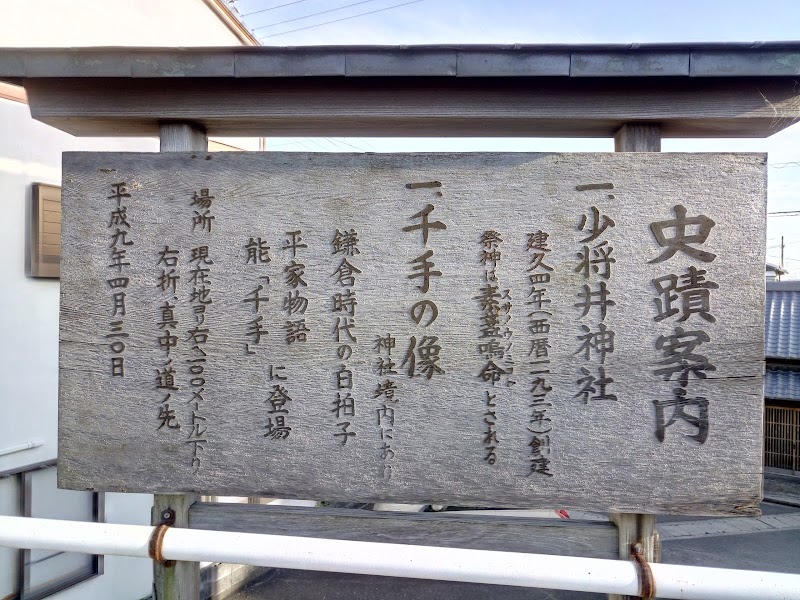 史蹟案内
一、少将井神社
建久四年(西暦一一九三年)創建
祭神は素盞嗚命とされる
スサノウノミコト
一、千手の像
神社境内にあり
鎌倉時代の白拍子
平家物語
能「千手」
に登場
場所 現在地ヨリ右へ100メートル下り
右折、真中ノ道ノ先
平成九年四月三〇日